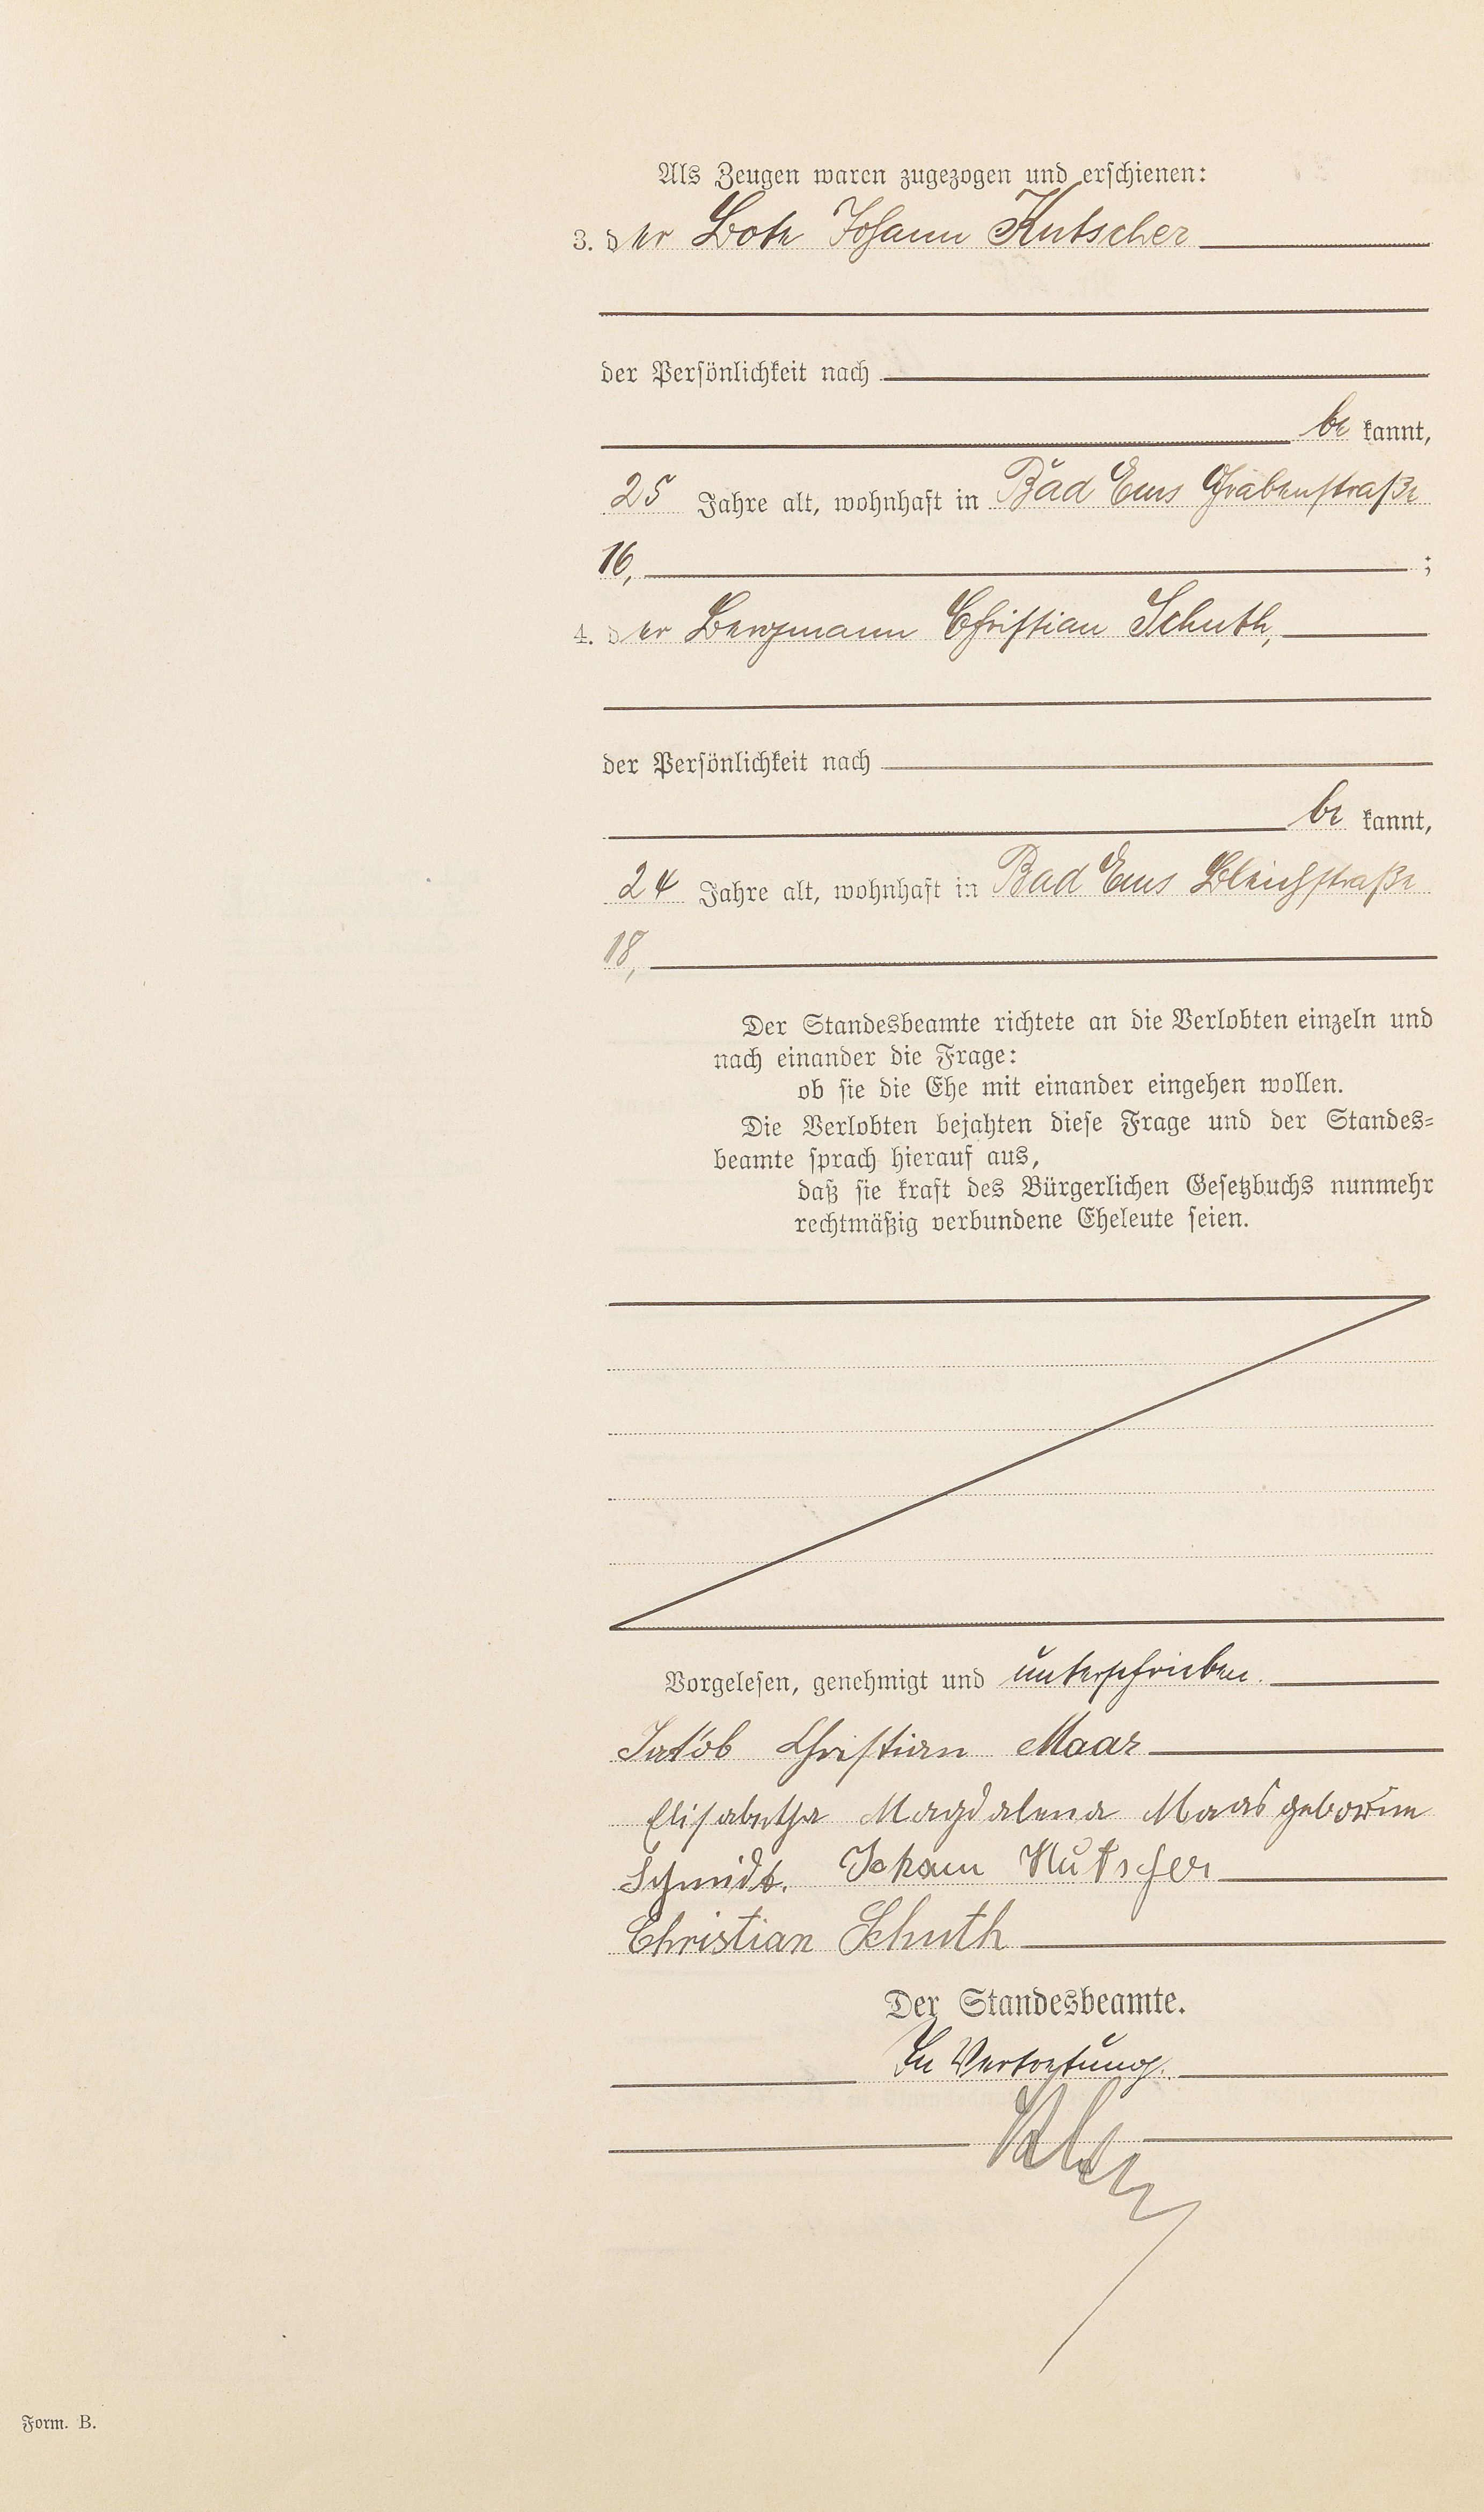 Als Zeugen waren zugezogen und erschienen:
3. der Bote Johann Kutscher
der Persönlichkeit nach
be kannt,
25 Jahre alt, wohnhaft in Bad Ems Grabenstraße
16, ;
4. der Bergmann Christian Schuth,
der Persönlichkeit nach
be kannt,
24 Jahre alt, wohnhaft in Bad Ems Bleichstraße
18,
Der Standesbeamte richtete an die Verlobten einzeln und
nach einander die Frage:
ob sie die Ehe mit einander eingehen wollen.
Die Verlobten bejahten diese Frage und der Standes-
beamte sprach hierauf aus,
daß sie kraft des Bürgerlichen Gesetzbuchs nunmehr
rechtmäßig verbundene Eheleute seien.
Vorgelesen, genehmigt und unterschrieben.
Jakob Christian Maas
Elisabetha Magdalena Maas geborene
Schmidt. Johann Kutscher
Christian Schuth
Der Standesbeamte.
In Vertretung.
Form. B.